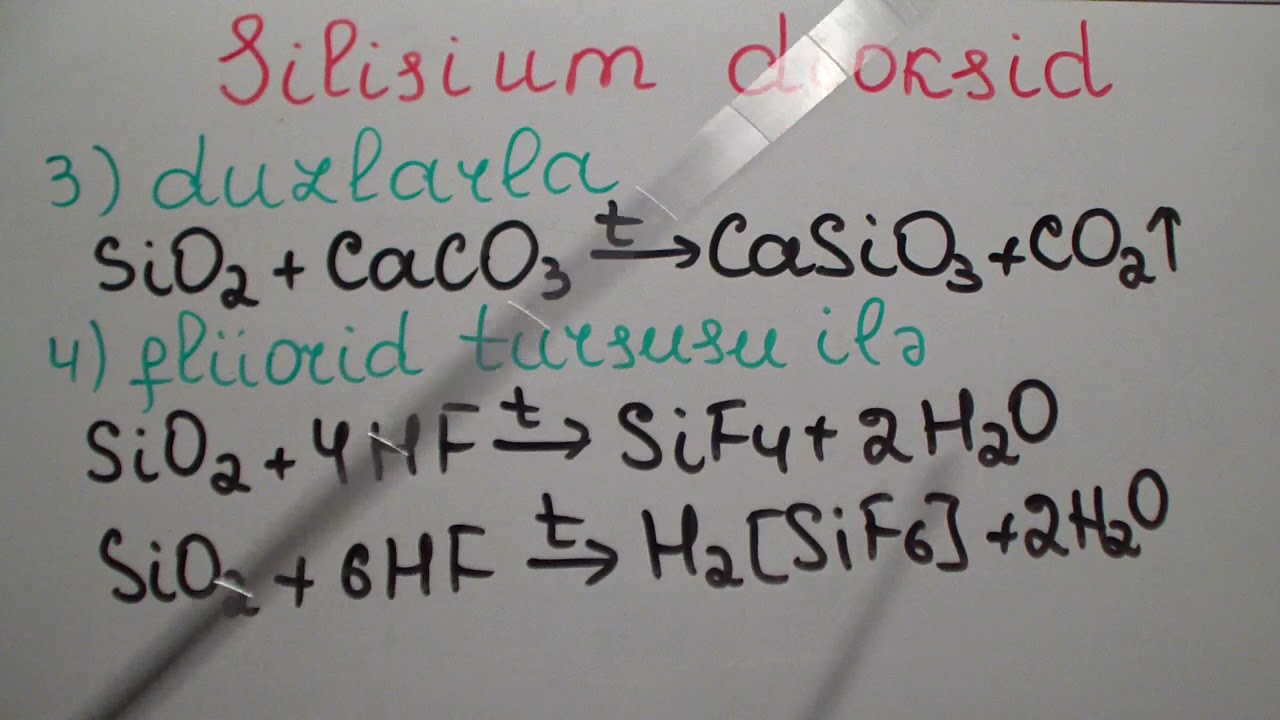 Silisium dioksid
3) duzlarla
SiO₂ + CaCO₃ →t CaSiO₃ + CO₂↑
4) flüorid tursusu ilə
SiO₂ + 4HF →t SiF₄ + 2H₂O
SiO₂ + 6HF →t H₂[SiF₆] + 2H₂O